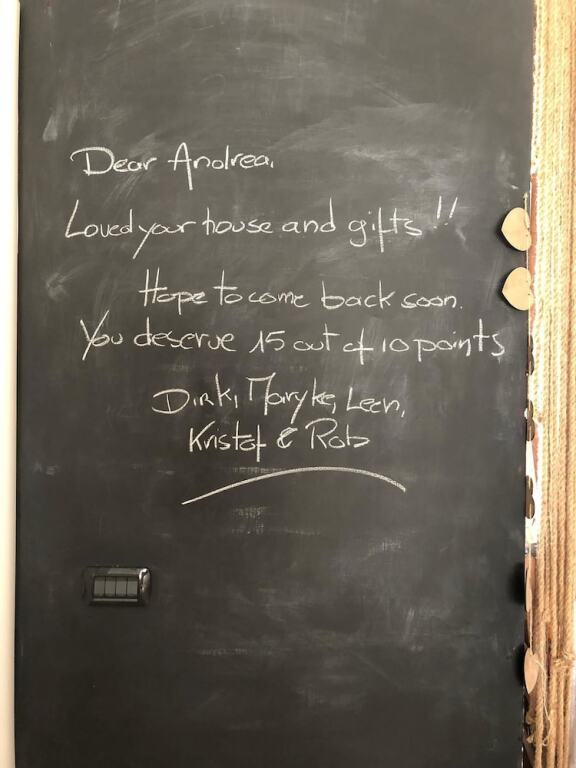 Dear Andrea,
Loved your house and gifts!!
Hope to come back soon.
You deserve 15 out of 10 points
Dirk, Maryke, Leen,
Kristof & Rob